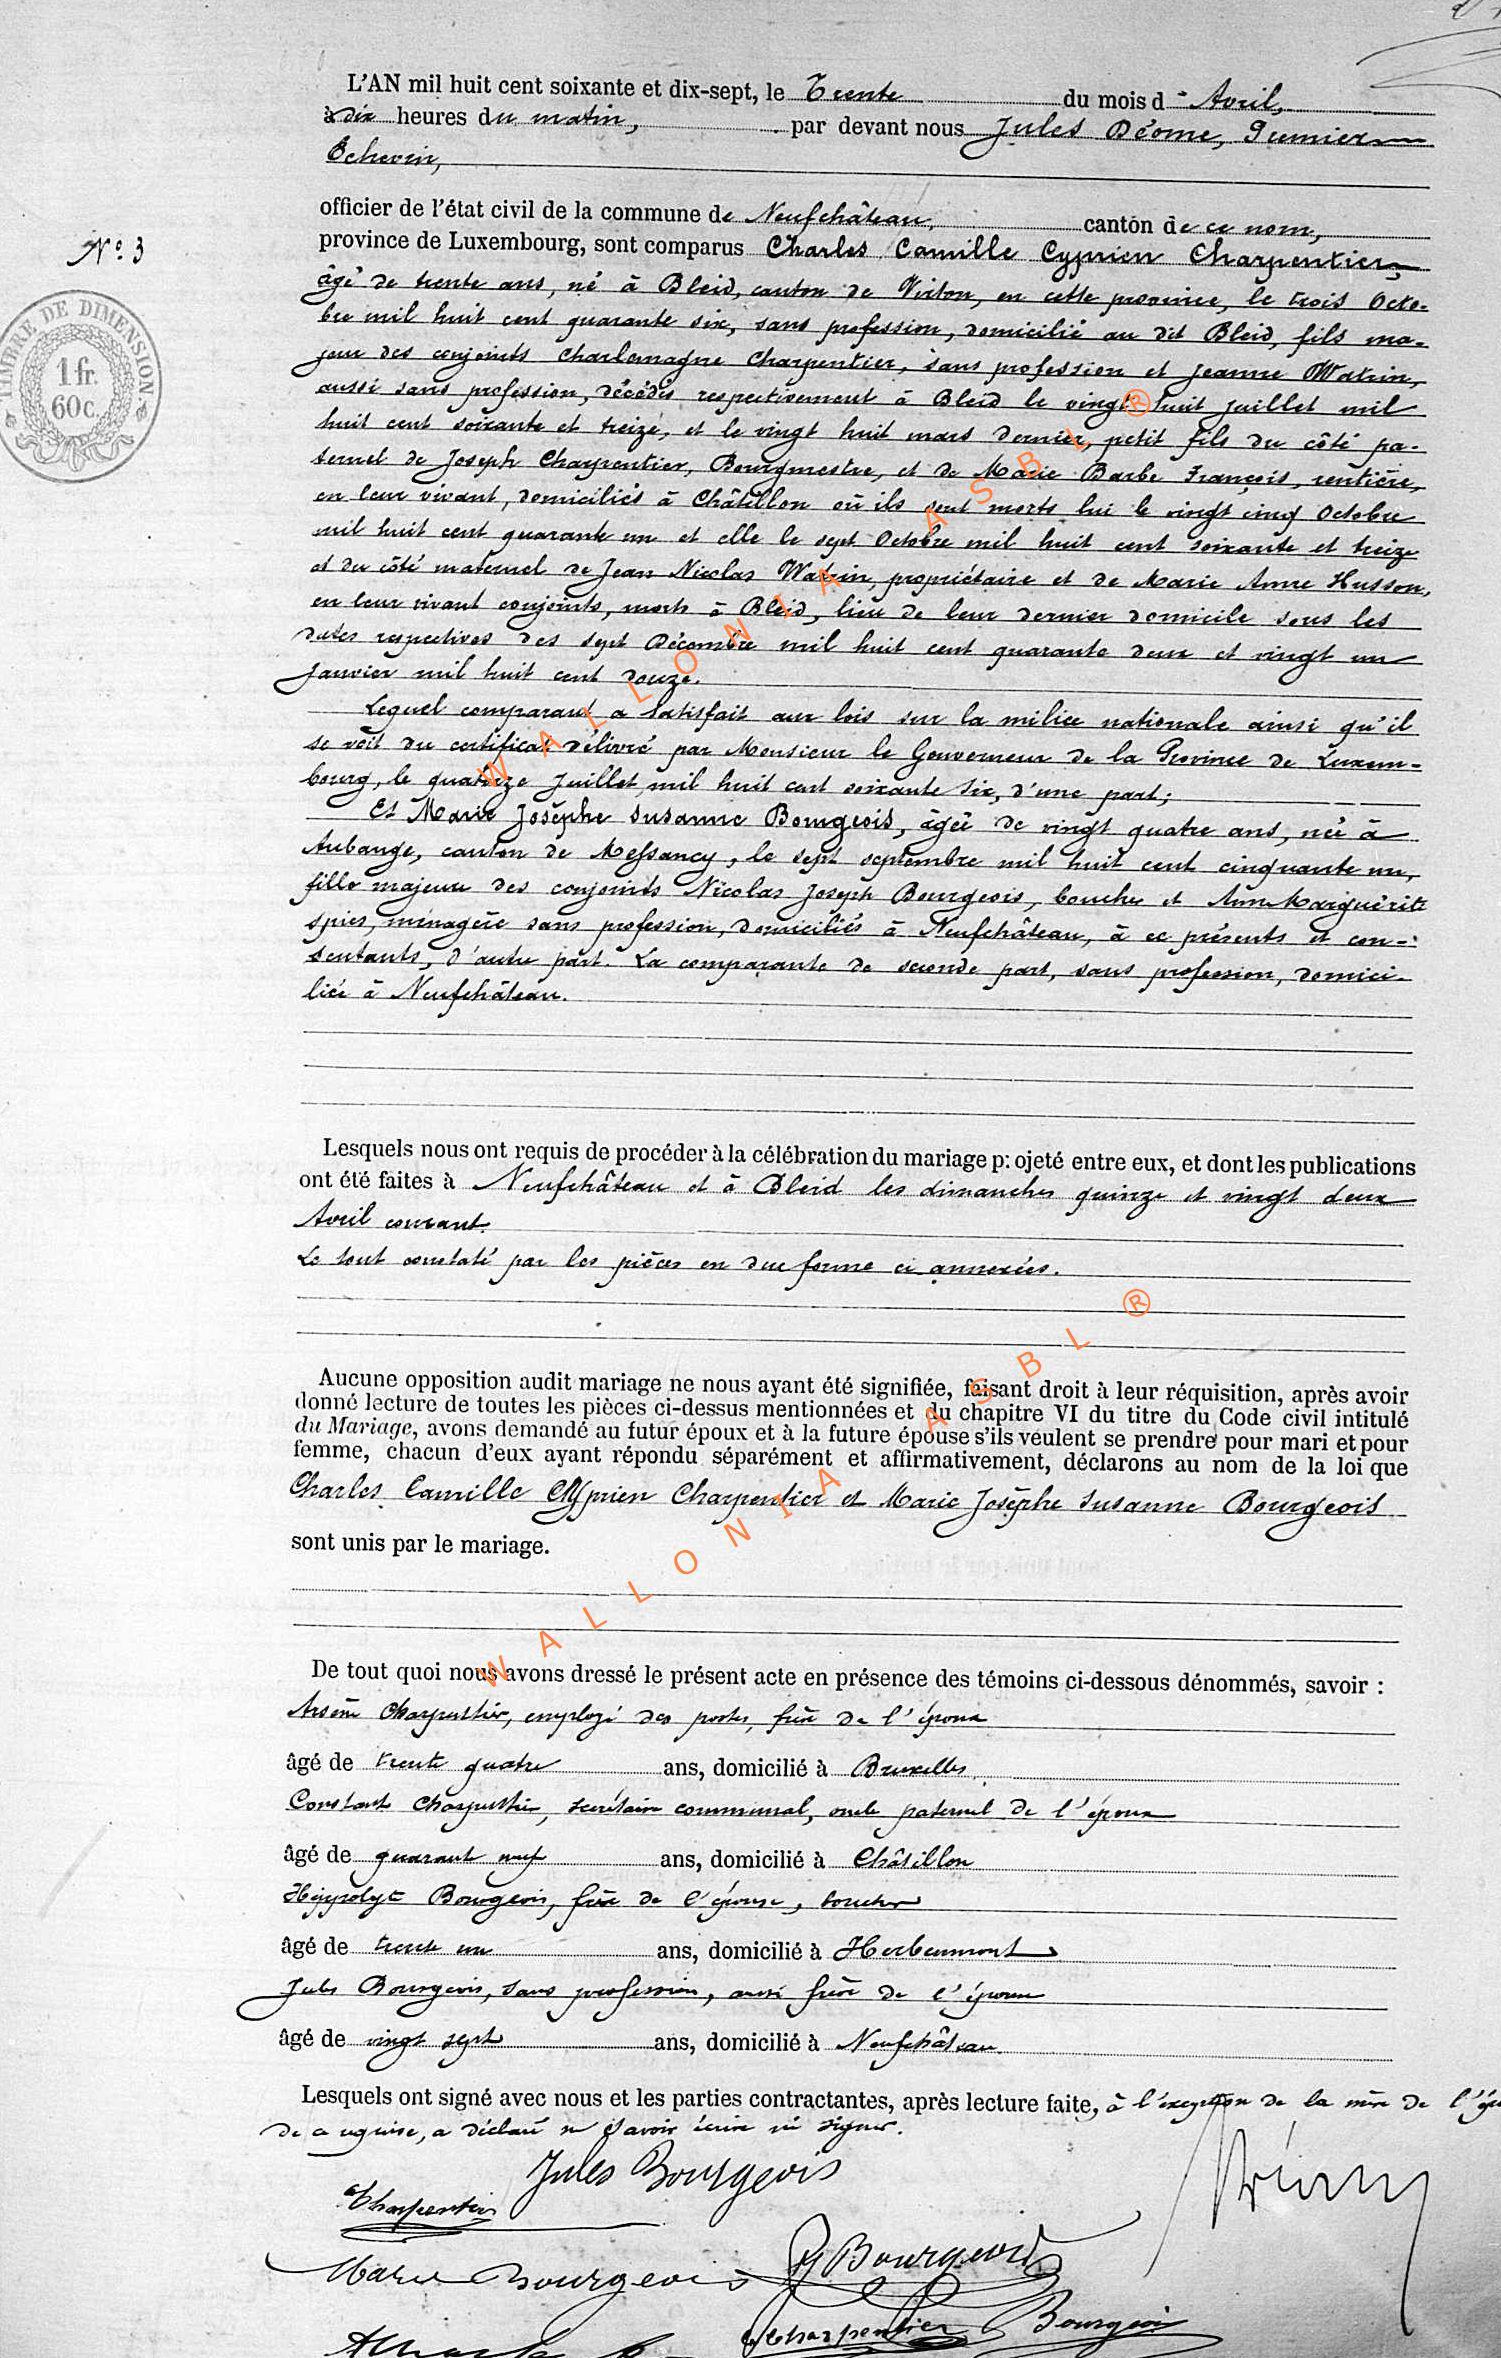 L'AN mil huit cent soixante et dix-sept, le Trente du mois d'Avril,
à dix heures du matin, par devant nous Jules Déome, Premier
Echevin,
officier de l'état civil de la commune de Neufchâteau, canton de ce nom,
N° 3
province de Luxembourg, sont comparus Charles Camille Cyprien Charpentier,
âgé de trente ans, né à Bleid, canton de Virton, en cette province, le trois Octo-
bre mil huit cent quarante six, sans profession, domicilié au dit Bleid, fils ma-
jeur des conjoints Charlemagne Charpentier, sans profession et Jeanne Watrin,
aussi sans profession, décédés respectivement à Bleid le vingt huit juillet mil
huit cent soixante et treize, et le vingt huit mars dernier, petit fils du côté pa-
ternel de Joseph Charpentier, Bourgmestre, et de Marie Barbe François, rentière,
en leur vivant, domiciliés à Châtillon où ils sont morts lui le vingt cinq Octobre
mil huit cent quarante un et elle le sept Octobre mil huit cent soixante et treize
et du côté maternel de Jean Nicolas Watrin, propriétaire et de Marie Anne Husson,
en leur vivant conjoints, morts à Bleid, lieu de leur dernier domicile sous les
dates respectives des sept Décembre mil huit cent quarante deux et vingt un
Janvier mil huit cent douze.
Lequel comparant a satisfait aux lois sur la milice nationale ainsi qu'il
se voit du certificat délivré par Monsieur le Gouverneur de la Province de Luxem-
bourg, le quatorze Juillet mil huit cent soixante six, d'une part;
Et Marie Josèphe Susanne Bourgeois, âgée de vingt quatre ans, née à
Aubange, canton de Messancy, le sept septembre mil huit cent cinquante un,
fille majeure des conjoints Nicolas Joseph Bourgeois, boucher et Anne Marguérite
Spies, ménagère sans profession, domiciliés à Neufchâteau, à ce présents et con-
sentants, d'autre part. La comparante de seconde part, sans profession, domici-
liée à Neufchâteau.
Lesquels nous ont requis de procéder à la célébration du mariage projeté entre eux, et dont les publications
ont été faites à Neufchâteau et à Bleid les dimanches quinze et vingt deux
Avril courant.
Le tout constaté par les pièces en due forme ci annexées.
Aucune opposition audit mariage ne nous ayant été signifiée, faisant droit à leur réquisition, après avoir
donné lecture de toutes les pièces ci-dessus mentionnées et du chapitre VI du titre du Code civil intitulé
du Mariage, avons demandé au futur époux et à la future épouse s'ils veulent se prendre pour mari et pour
femme, chacun d'eux ayant répondu séparément et affirmativement, déclarons au nom de la loi que
Charles Camille Cyprien Charpentier et Marie Josèphe Susanne Bourgeois
sont unis par le mariage.
De tout quoi nous avons dressé le présent acte en présence des témoins ci-dessous dénommés, savoir :
Arsène Charpentier, employé des postes, frère de l'époux
âgé de trente quatre ans, domicilié à Bruxelles
Constant Charpentier, secrétaire communal, oncle paternel de l'époux
âgé de quarante neuf ans, domicilié à Châtillon
Hippolyte Bourgeois, frère de l'épouse, boucher
âgé de trente un ans, domicilié à Herbeumont
Jules Bourgeois, sans profession, aussi frère de l'épouse
âgé de vingt sept ans, domicilié à Neufchâteau.
Lesquels ont signé avec nous et les parties contractantes, après lecture faite, à l'exception de la mère de
de ce requise, a déclaré ne savoir écrire ni signer.
Jules Bourgeois
Charpentier
Marie Bourgeois
Bourgeois
Charpentier Bourgeois
TIMBRE DE DIMENSION
1 fr.
60 c.
WALLONIA ASBL ®
WALLONIA ASBL ®